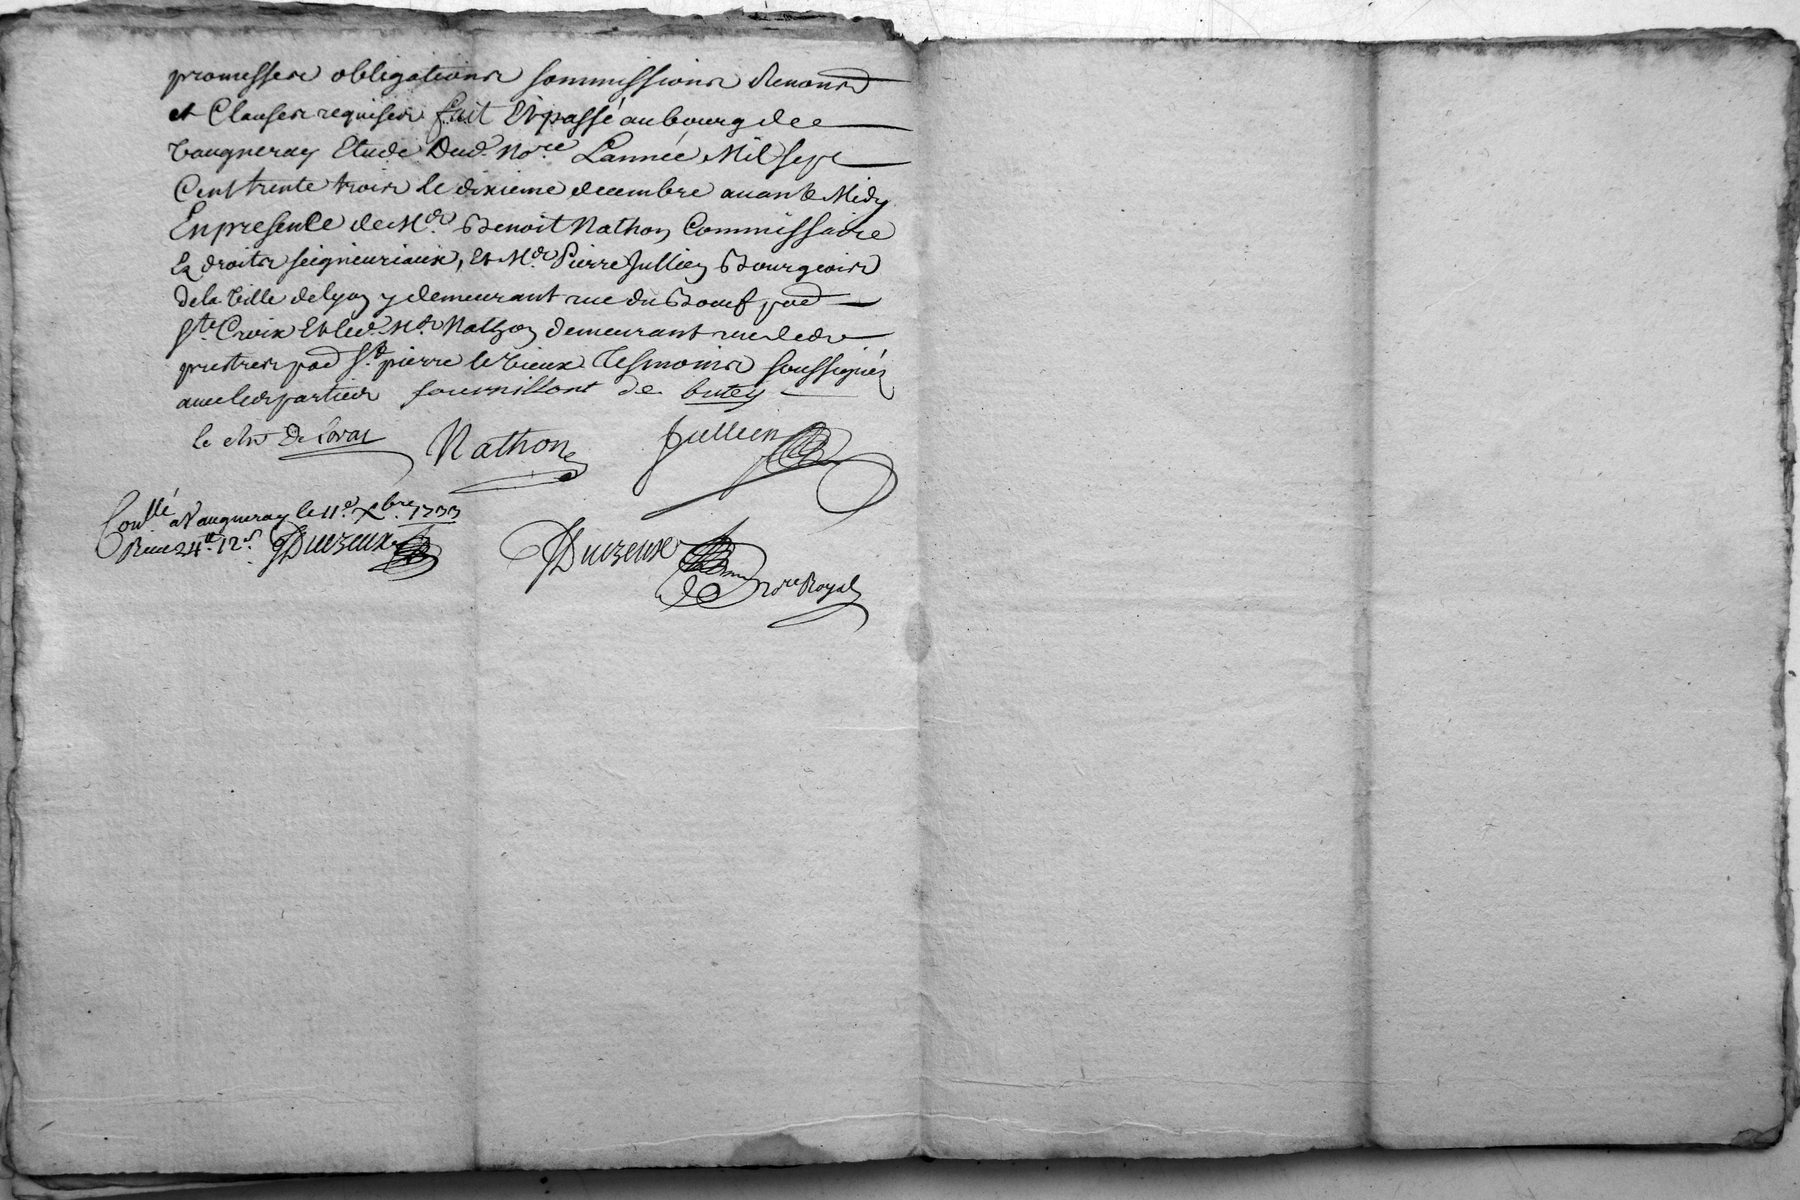 promesses obligations sommissions Renons
et Clauses requises fait Et passé au bourg de
Vaugneray Etude Dud. No.re L'année Mil sept
Cent trente trois le dixieme decembre avant Midy
En presence de Mr. Benoit Nathon Commissaire
En droits seigneuriaux, Et Mr. Pierre Jullien Bourgeois
de la Ville de lyon y demeurant rue du Boeuf par
Ste. Croix Et led. Mr. Nathon demeurant rue des
prestres par St. pierre le vieux Tesmoins soussignés
avec les parties fournillont de butery
le chr De Loras Nathon Jullien
Conllé a Vaugneray le 11e. Xbre. 1733
Receu 24tt 12s. Duvzeux
Duvzeux
No.re Royal